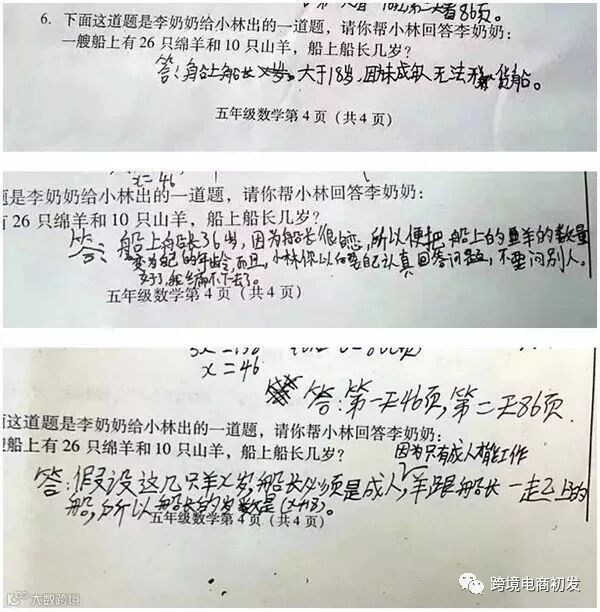 第一天看46页第二天看86页。
6. 下面这道题是李奶奶给小林出的一道题，请你帮小林回答李奶奶：
一艘船上有 26 只绵羊和 10 只山羊，船上船长几岁？
答：船上船长 大于18岁，因未成年 无法开 货船。
五年级数学第 4 页（共 4 页）
x=46
题是李奶奶给小林出的一道题，请你帮小林回答李奶奶：
有 26 只绵羊和 10 只山羊，船上船长几岁？
答：船上船长36岁，因为船长很恋 所以便把船上的 羊的数量
变为自己的年龄，而且，小林你以 要自己认真回答问题，不要问别人。
编不下去了。
五年级数学第 4 页（共 4 页）
x=46
答：第一天46页，第二天86页.
面这道题是李奶奶给小林出的一道题，请你帮小林回答李奶奶：
艘船上有 26 只绵羊和 10 只山羊，船上船长几岁？
因为只有成人才能工作
答：假设这几只羊X岁，船长必须是成人，羊跟船长一起上的
船，所以船长的岁数是(x+18)。
五年级数学第 4 页（共 4 页）
大数跨境
跨境电商初发